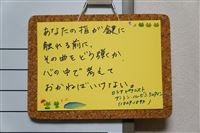 あなたの指が鍵に
触れる前に、
その曲をどう弾くか
心の中で考えて
おかねばいけない。
ロシアのピアニスト
アントン・ルービンシュタイン